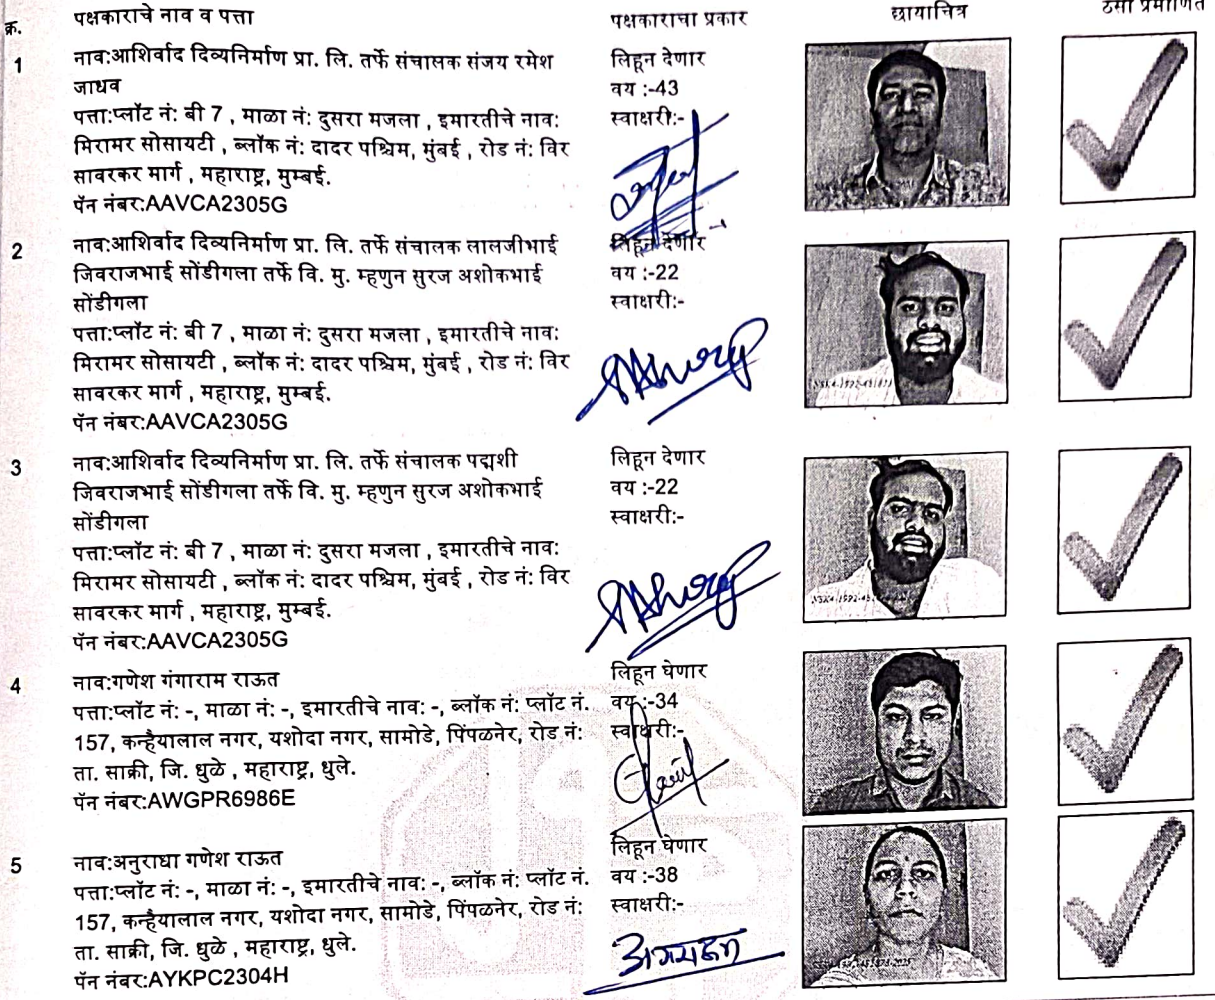 क्र.
पक्षकाराचे नाव व पत्ता
पक्षकाराचा प्रकार
छायाचित्र
ठसा प्रमाणित
1
नाव:आशिर्वाद दिव्यनिर्माण प्रा. लि. तर्फे संचालक संजय रमेश
जाधव
पत्ता:प्लॉट नं: बी 7 , माळा नं: दुसरा मजला , इमारतीचे नाव:
मिरामर सोसायटी , ब्लॉक नं: दादर पश्चिम, मुंबई , रोड नं: विर
सावरकर मार्ग , महाराष्ट्र, मुम्बई.
पॅन नंबर:AAVCA2305G
लिहून देणार
वय :-43
स्वाक्षरी:-
2
नाव:आशिर्वाद दिव्यनिर्माण प्रा. लि. तर्फे संचालक लालजीभाई
जिवराजभाई सोंडीगला तर्फे वि. मु. म्हणुन सुरज अशोकभाई
सोंडीगला
पत्ता:प्लॉट नं: बी 7 , माळा नं: दुसरा मजला , इमारतीचे नाव:
मिरामर सोसायटी , ब्लॉक नं: दादर पश्चिम, मुंबई , रोड नं: विर
सावरकर मार्ग , महाराष्ट्र, मुम्बई.
पॅन नंबर:AAVCA2305G
लिहून देणार
वय :-22
स्वाक्षरी:-
3
नाव:आशिर्वाद दिव्यनिर्माण प्रा. लि. तर्फे संचालक पद्मशी
जिवराजभाई सोंडीगला तर्फे वि. मु. म्हणुन सुरज अशोकभाई
सोंडीगला
पत्ता:प्लॉट नं: बी 7 , माळा नं: दुसरा मजला , इमारतीचे नाव:
मिरामर सोसायटी , ब्लॉक नं: दादर पश्चिम, मुंबई , रोड नं: विर
सावरकर मार्ग , महाराष्ट्र, मुम्बई.
पॅन नंबर:AAVCA2305G
लिहून देणार
वय :-22
स्वाक्षरी:-
4
नाव:गणेश गंगाराम राऊत
पत्ता:प्लॉट नं: -, माळा नं: -, इमारतीचे नाव: -, ब्लॉक नं: प्लॉट नं.
157, कन्हैयालाल नगर, यशोदा नगर, सामोडे, पिंपळनेर, रोड नं:
ता. साक्री, जि. धुळे , महाराष्ट्र, धुले.
पॅन नंबर:AWGPR6986E
लिहून घेणार
वय :-34
स्वाक्षरी:-
5
नाव:अनुराधा गणेश राऊत
पत्ता:प्लॉट नं: -, माळा नं: -, इमारतीचे नाव: -, ब्लॉक नं: प्लॉट नं.
157, कन्हैयालाल नगर, यशोदा नगर, सामोडे, पिंपळनेर, रोड नं:
ता. साक्री, जि. धुळे , महाराष्ट्र, धुले.
पॅन नंबर:AYKPC2304H
लिहून घेणार
वय :-38
स्वाक्षरी:-